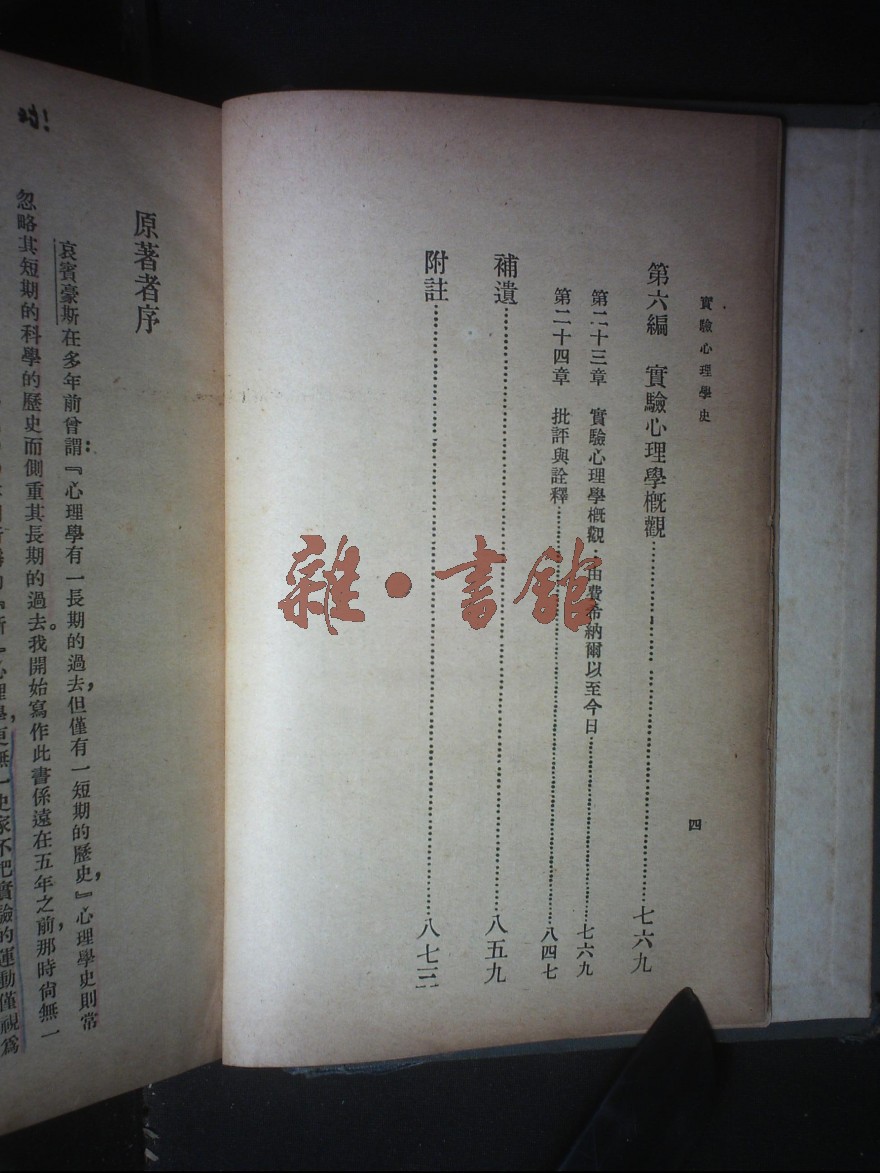 實驗心理學史
第六編 實驗心理學概觀……七六九
第二十三章 實驗心理學概觀:由費希納爾以至今日……七六九
第二十四章 批評與詮釋……八四七
補遺……八五九
附註……八七三
四
原著者序
哀賓豪斯在多年前曾謂:『心理學有一長期的過去,但僅有一短期的歷史,』心理學史則常
忽略其短期的科學的歷史而側重其長期的過去。我開始寫作此書係遠在五年之前,那時尙無一
心理學,更無一史家不把實驗的運動僅視爲
雜·書館